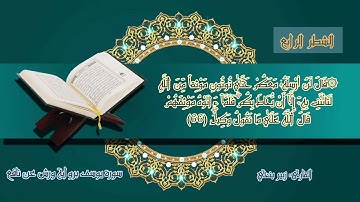 الشطر الرابع
۞قَالَ لَنْ أُرْسِلَهُ مَعَكُمْ حَتَّىٰ تُوتُونِ مَوْثِقاً مِّنَ اَللَّهِ
لَتَاتُنَّنِے بِهِۦٓ إِلَّآ أَنْ يُّحَاطَ بِكُمْ فَلَمَّآ ءَاتَوْهُ مَوْثِقَهُمْ
قَالَ اَللَّهُ عَلَىٰ مَا نَقُولُ وَكِيلٌ (66)
سورة يوسف برواية ورش عن نافع